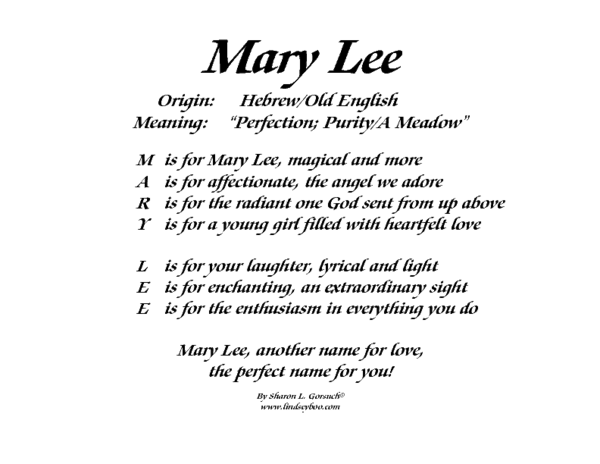 Mary Lee
Origin: Hebrew/Old English
Meaning: "Perfection; Purity/A Meadow"
M is for Mary Lee, magical and more
A is for affectionate, the angel we adore
R is for the radiant one God sent from up above
Y is for a young girl filled with heartfelt love
L is for your laughter, lyrical and light
E is for enchanting, an extraordinary sight
E is for the enthusiasm in everything you do
Mary Lee, another name for love,
the perfect name for you!
By Sharon L. Gorsuch©
www.lindseyboo.com